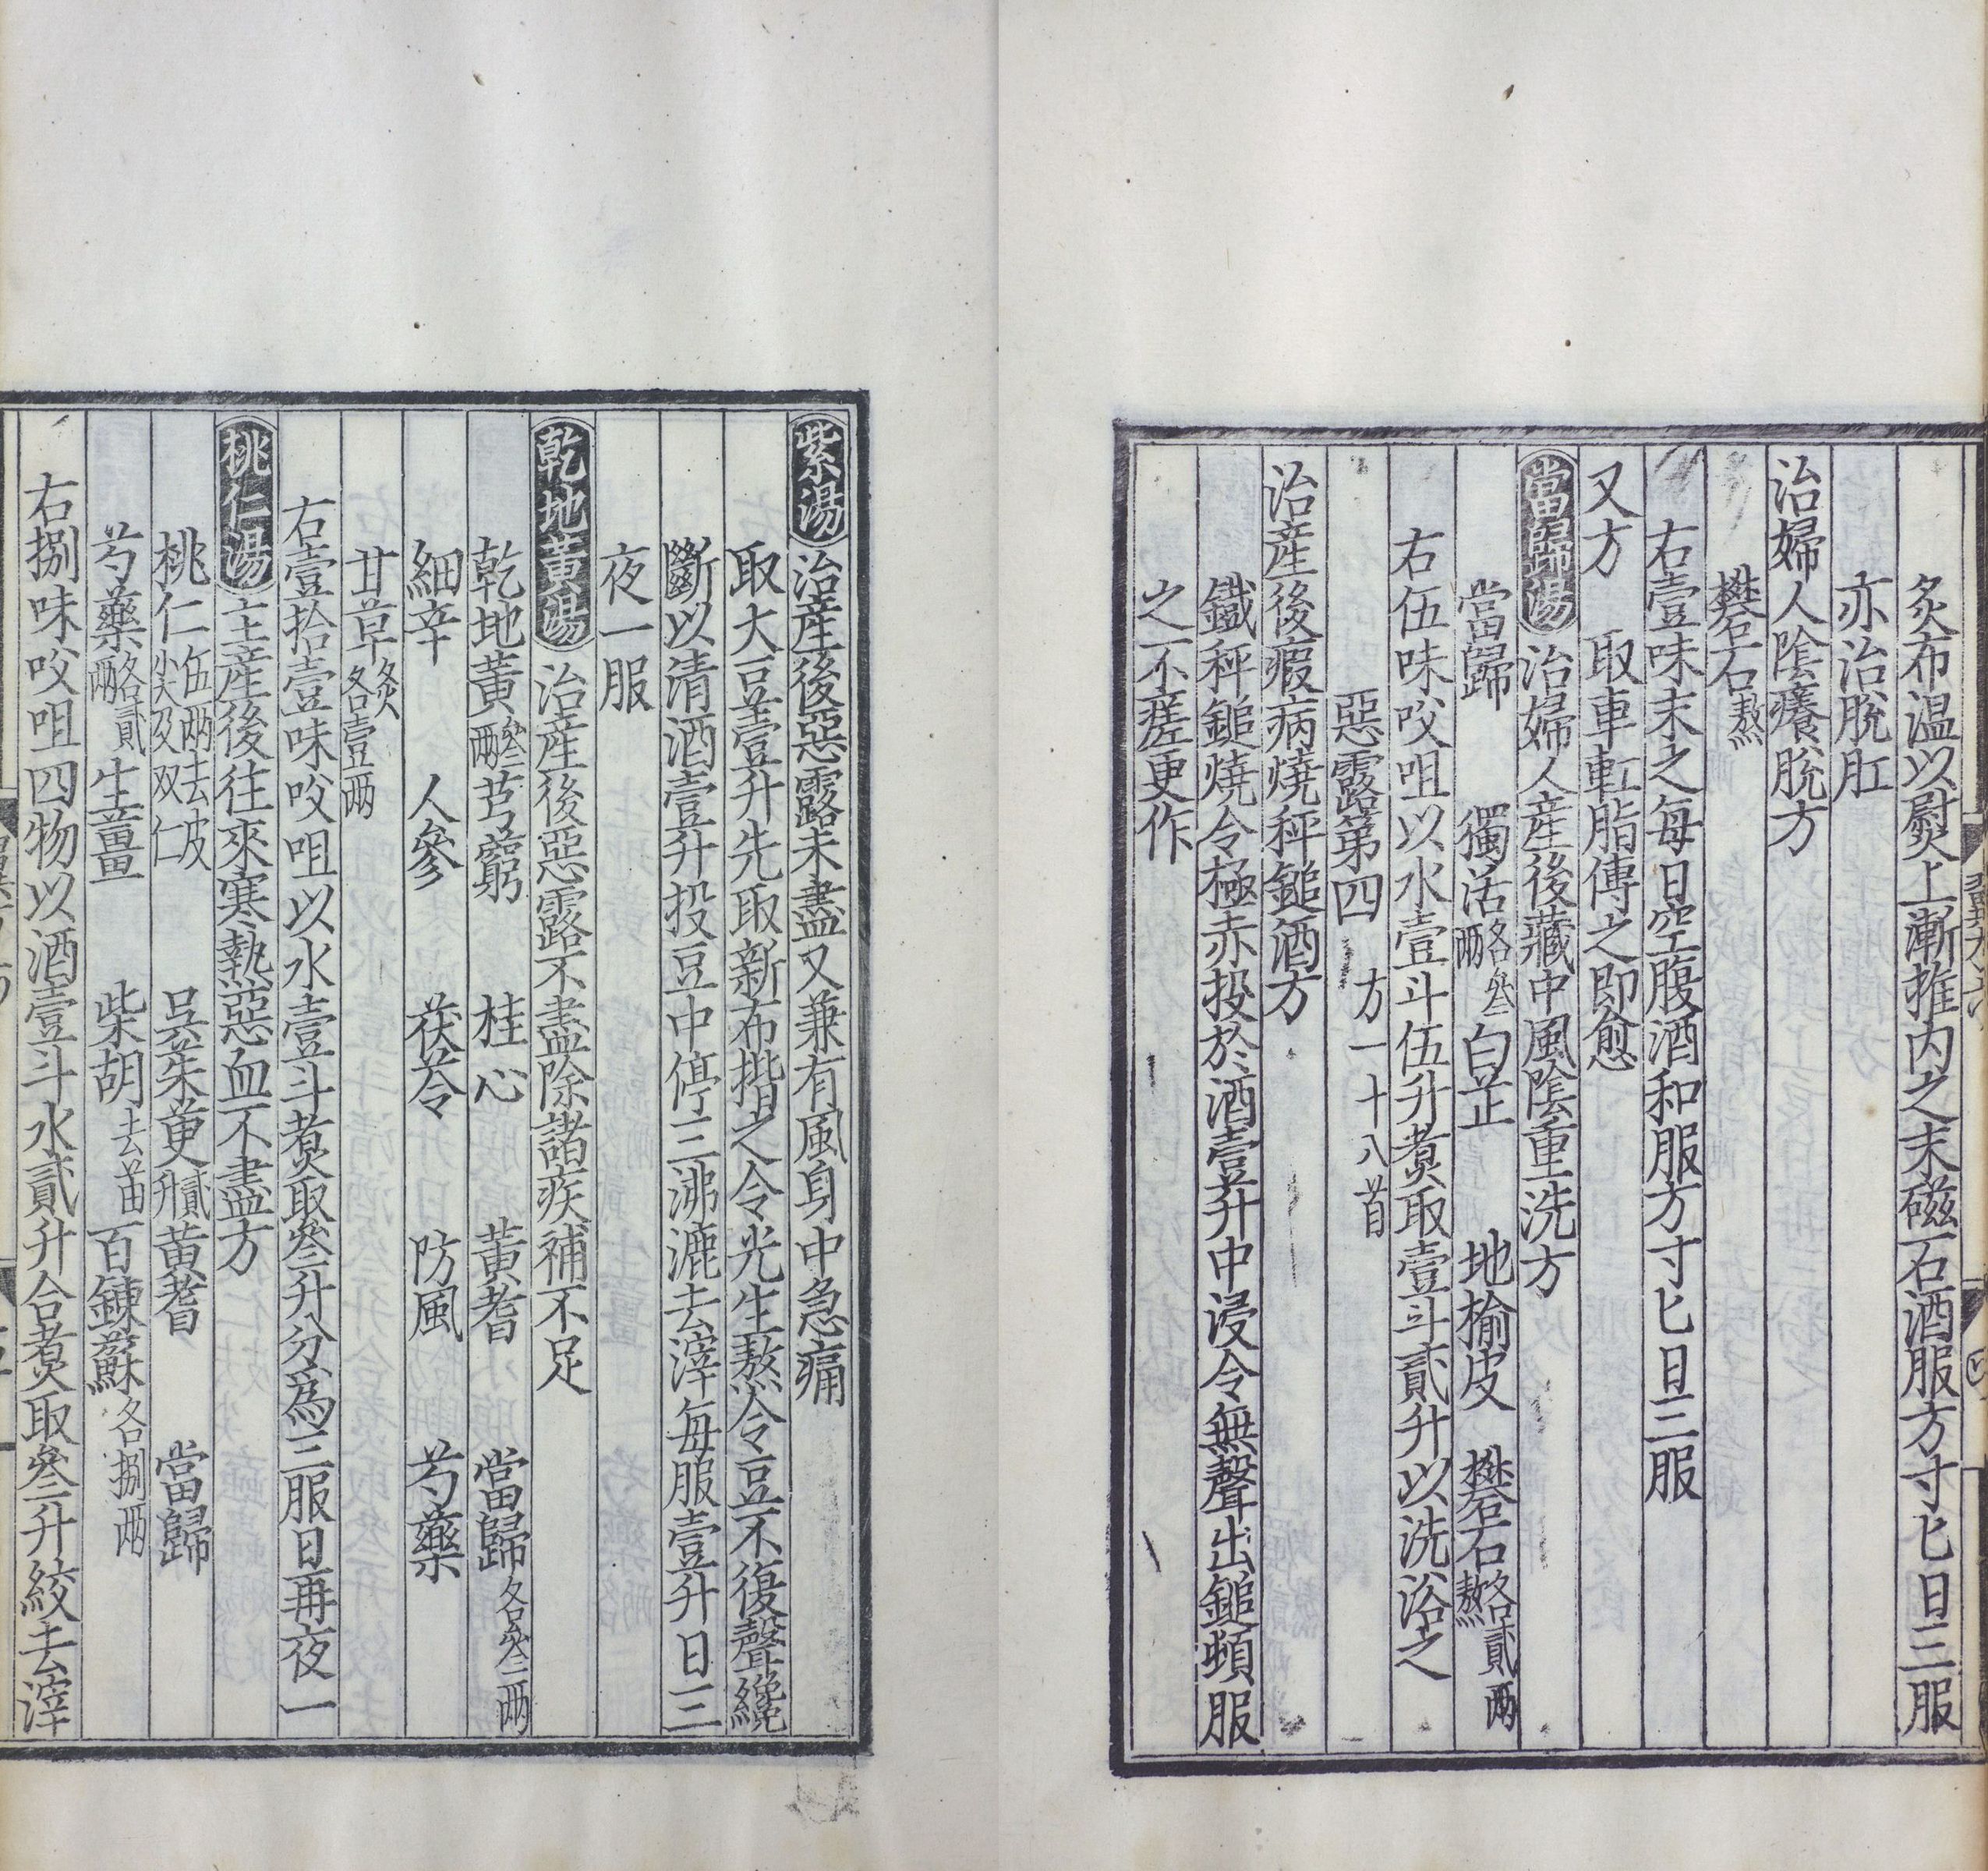 炙布温以熨上漸推内之末磁石酒服方寸匕日三服
亦治脫肛
治婦人隂癢脫方
礬石熬
右壹味末之每日空腹酒和服方寸匕日三服
又方 取車軭脂傅之即愈
當歸湯 治婦人産後藏中風隂重洗方
當歸 獨活各叄兩 白芷 地榆皮 礬石各貳兩熬
右伍味㕮咀以水壹斗伍升煮取壹斗貳升以洗浴之
惡露第四 方一十八首
治産後瘕病燒秤鎚酒方
鐵秤鎚燒令極赤投於酒壹升中浸令無聲出鎚頓服
之不瘥更作
紫湯 治産後惡露未盡又兼有風身中急痛
取大豆壹升先取新布揩之令光生熬令豆不復聲纔
斷以清酒壹升投豆中停三沸漉去滓每服壹升日三
夜一服
乾地黃湯 治産後惡露不盡除諸疾補不足
乾地黃叄兩 芎藭 桂心 黃耆 當歸各叄兩
細辛 人參 茯苓 防風 芍藥
甘草炙各壹兩
右壹拾壹味㕮咀以水壹斗煮取叄升分為三服日再夜一
桃仁湯 主産後往來寒熱惡血不盡方
桃仁伍兩去皮尖及双仁 吴茱萸貳升 黃耆 當歸
芍藥各貳兩 生薑 柴胡去苗 百鍊蘇各捌兩
右捌味㕮咀四物以酒壹斗水貳升合煮取叄升絞去滓